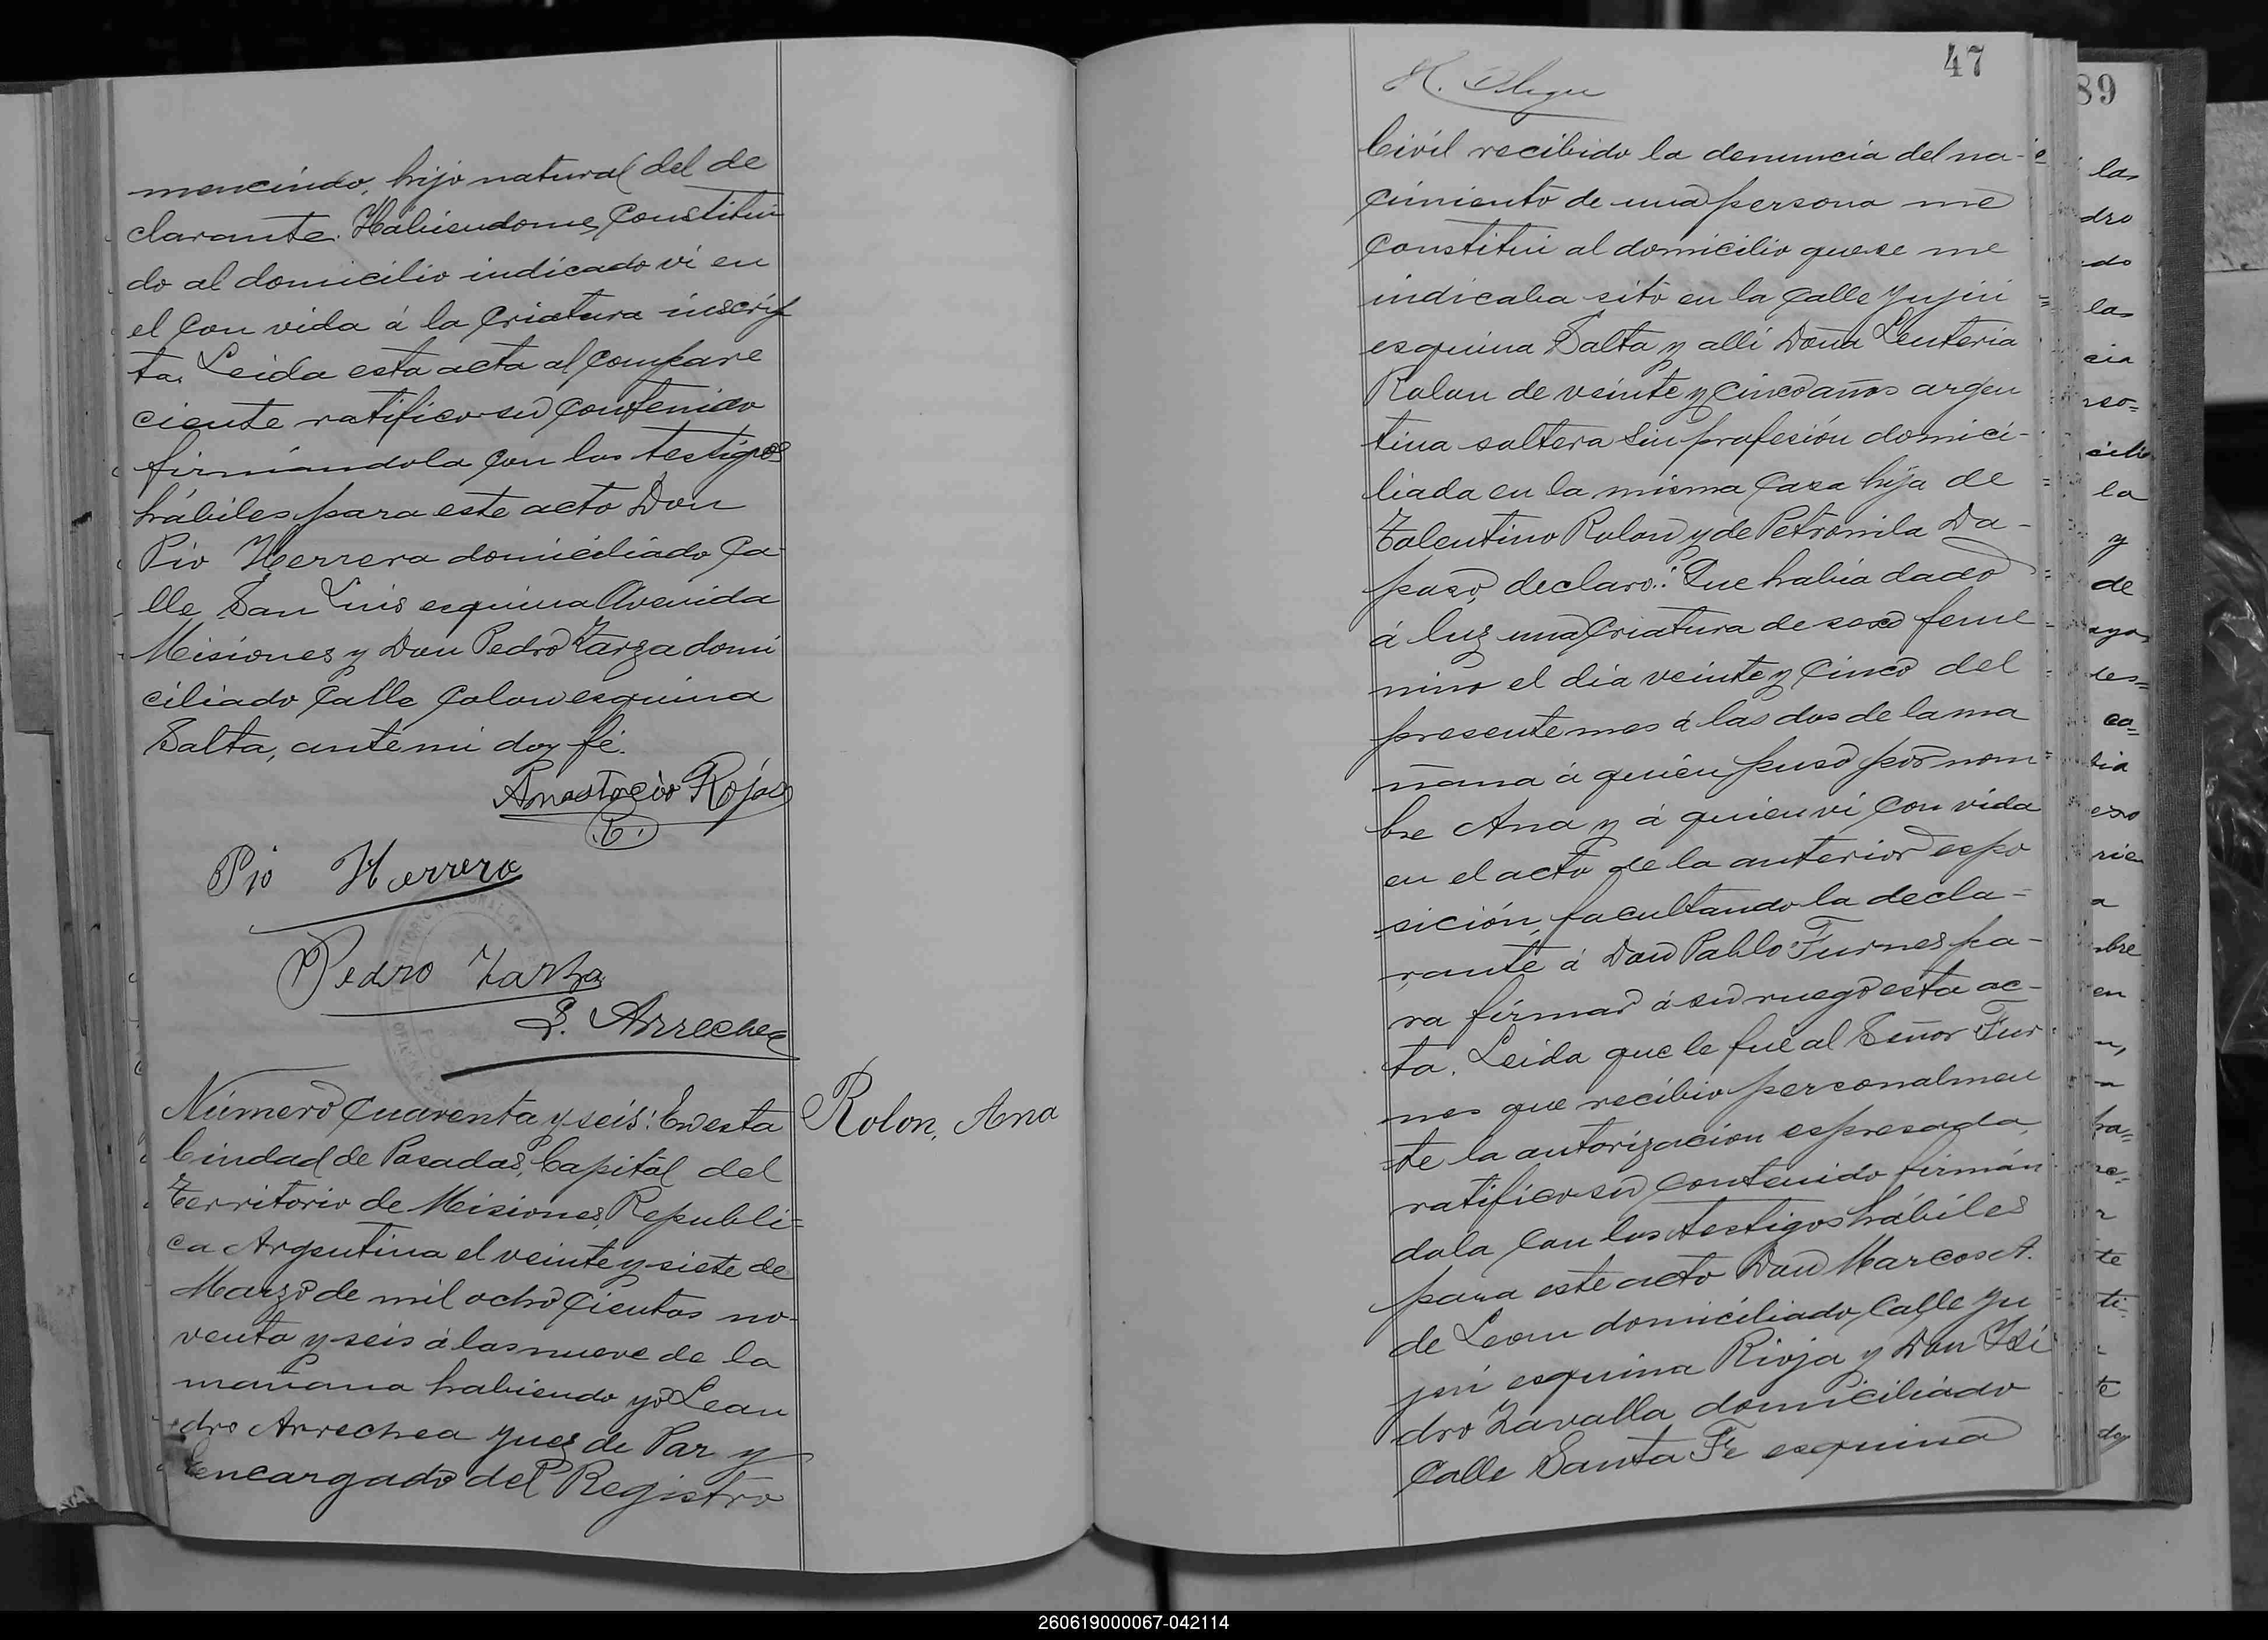 mencindo, hijo natural del de
clarante. Habiendome constitui
do al domicilio indicado vi en
el con vida á la criatura inscrip
ta. Leida esta acta al compare
ciente ratifico su contenido
firmandola con los testigos
hábiles para este acto Don
Pio Herrera domiciliado ca
lle San Luis esquina Avenida
Misiones y Don Pedro Zarza domi
ciliado Calle Colon esquina
Salta, ante mi doy fé.
Anastacio Rojas
Pio Herrera
Pedro Zarza
L. Arrechea
Número cuarenta y seis: En esta
Ciudad de Posadas, Capital del
Territorio de Misiones, Republi=
ca Argentina el veinte y siete de
Marzo de mil ochocientos no-
venta y seis á las nueve de la
mañana habiendo yo Lean
dro Arrechea Juez de Paz y
encargado del Registro
Rolon, Ana
47
Civil recibido la denuncia del na-
cimiento de una persona me
constitui al domicilio que se me
indicaba sito en la calle Jujui
esquina Salta y alli Doña Leuteria
Rolon de veinte y cinco años argen
tina soltera sin profesión domici-
liada en la misma casa hija de
Tolentino Rolon y de Petronila Da-
paso, declaro: Que habia dado
á luz una criatura de sexo feme
nino el dia veinte y cinco del
presente mes á las dos de la ma
ñana á quien puso por nom=
bre Ana y á quien vi con vida
en el acto de la anterior espo
sición, facultando la decla-
rante á Don Pablo Furnes pa-
ra firmar á su ruego esta ac-
ta. Leida que le fue al Señor Fur
nes que recibio personalmen
te la autorizacion espresada,
ratifico su contenido firmán
dola con los testigos hábiles
para este acto Don Marcos A.
de Leon domiciliado Calle Ju
jui esquina Rioja y Don Isi
dro Zavalla domiciliado
Calle Santa Fe esquina
89
las
dro
do
las
cia
la
y
de
260619000067-042114